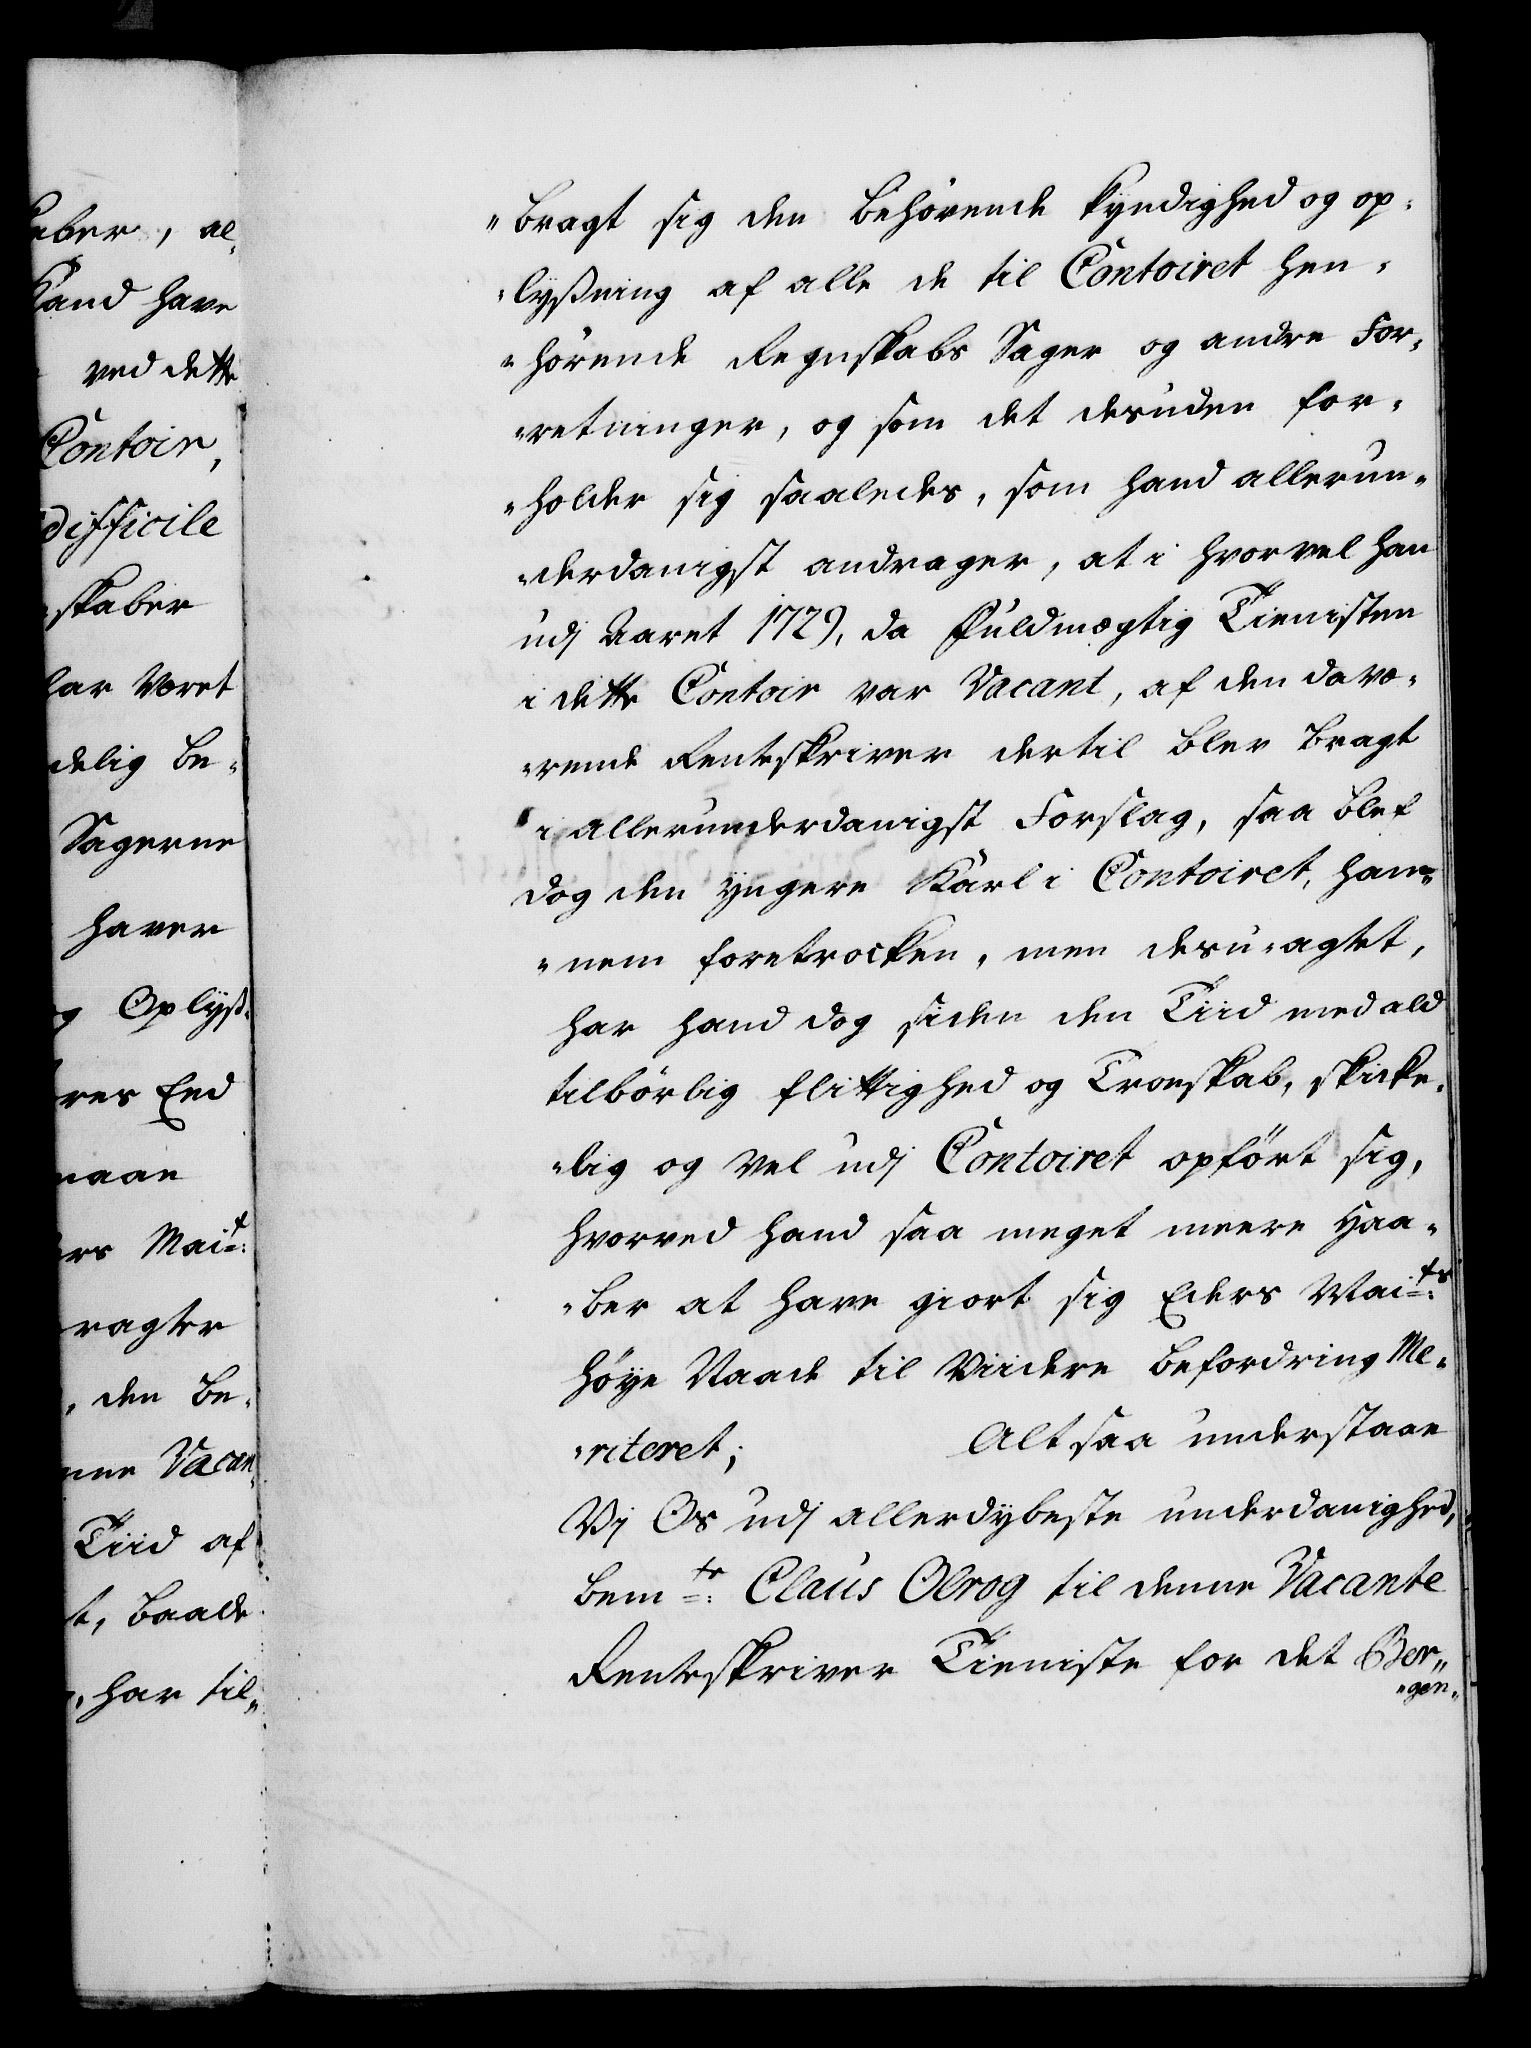 aber, al-
Kand have
ved dette
Contoir,
difficile
skaber
har Været
delig be-
Sagerne
haver
og Oplyß-
res Eed
maae
ers Mait:
ragter
, den be-
nne Vacan-
Tiid af
t, baade
, har til-
"bragt sig den behørende kyndighed og op-
"lyßning af alle de til Contoiret hen-
"hørende Regnskabs Sager og andre For-
"retninger, og som det desuden for-
"holder sig saaledes, som hand allerun-
"derdanigst andrager, at i hvorvel han
udj Aaret 1729, da Fuldmægtig Tienisten
i dette Contoir var Vacant, af den davæ-
"rende Rentskriver dertil blev bragt
i allerunderdanigst Forslag, saa blef
dog den yngere Karl i Contoiret, han-
"nem foretrocken, men desu-agtet,
har hand dog siden den Tiid med ald
tilbørlig flittighed og Troeskab, skicke-
"lig og Vel udj Contoiret opført sig,
hvorved hand saa meget meere Haa-
"ber at have giort sig Eders Maits:
høye Naade til Viidere befordring Me-
"riteret; Alt saa understaae
Vj Os udj allerdybeste underdanighed,
bemte: Claus Olrog til denne Vacante
Rentskriver Tieniste for det Ber-
"gen-